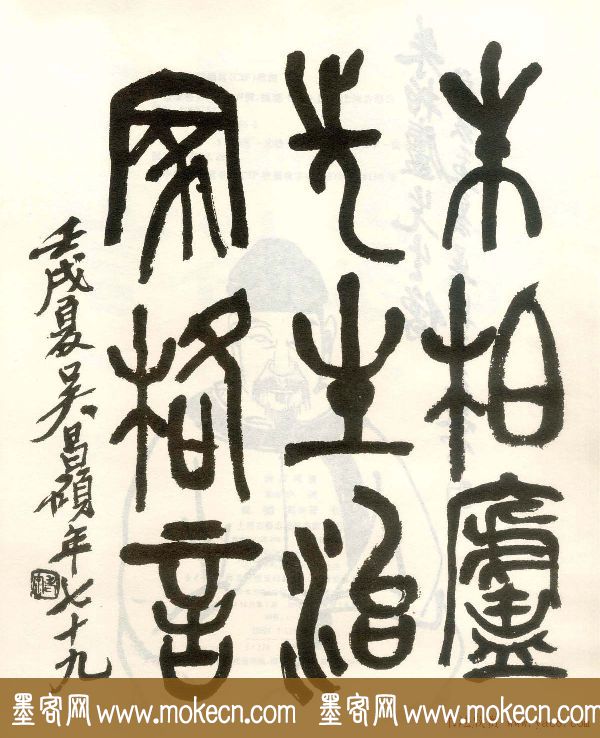 朱柏廬
先生治
家格言
壬戌夏吴昌碩年七十九
墨客网 www.mokecn.com 墨客网 www.mokecn.com